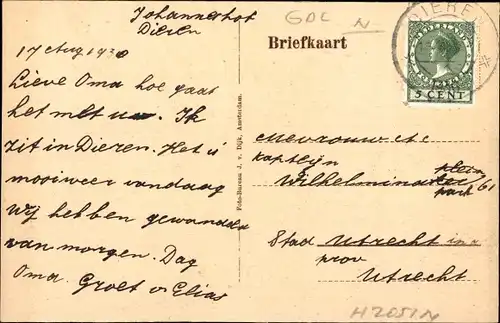 Johannerhof
Dieren
GDL N
DIEREN
17 Aug 1930
Briefkaart
NEDERLAND
5 CENT
Lieve Oma hoe gaat
het met u. Ik
zit in Dieren. Het is
mooi weer vandaag
Wij hebben gewandeld
van morgen. Dag
Oma. Groet v Elias
Foto-Bureau J. v. Dijk, Amsterdam.
Mevrouw
Kapteijn
Wilhelmina
park 61
Stad Utrecht in
prov
Utrecht
H2051N